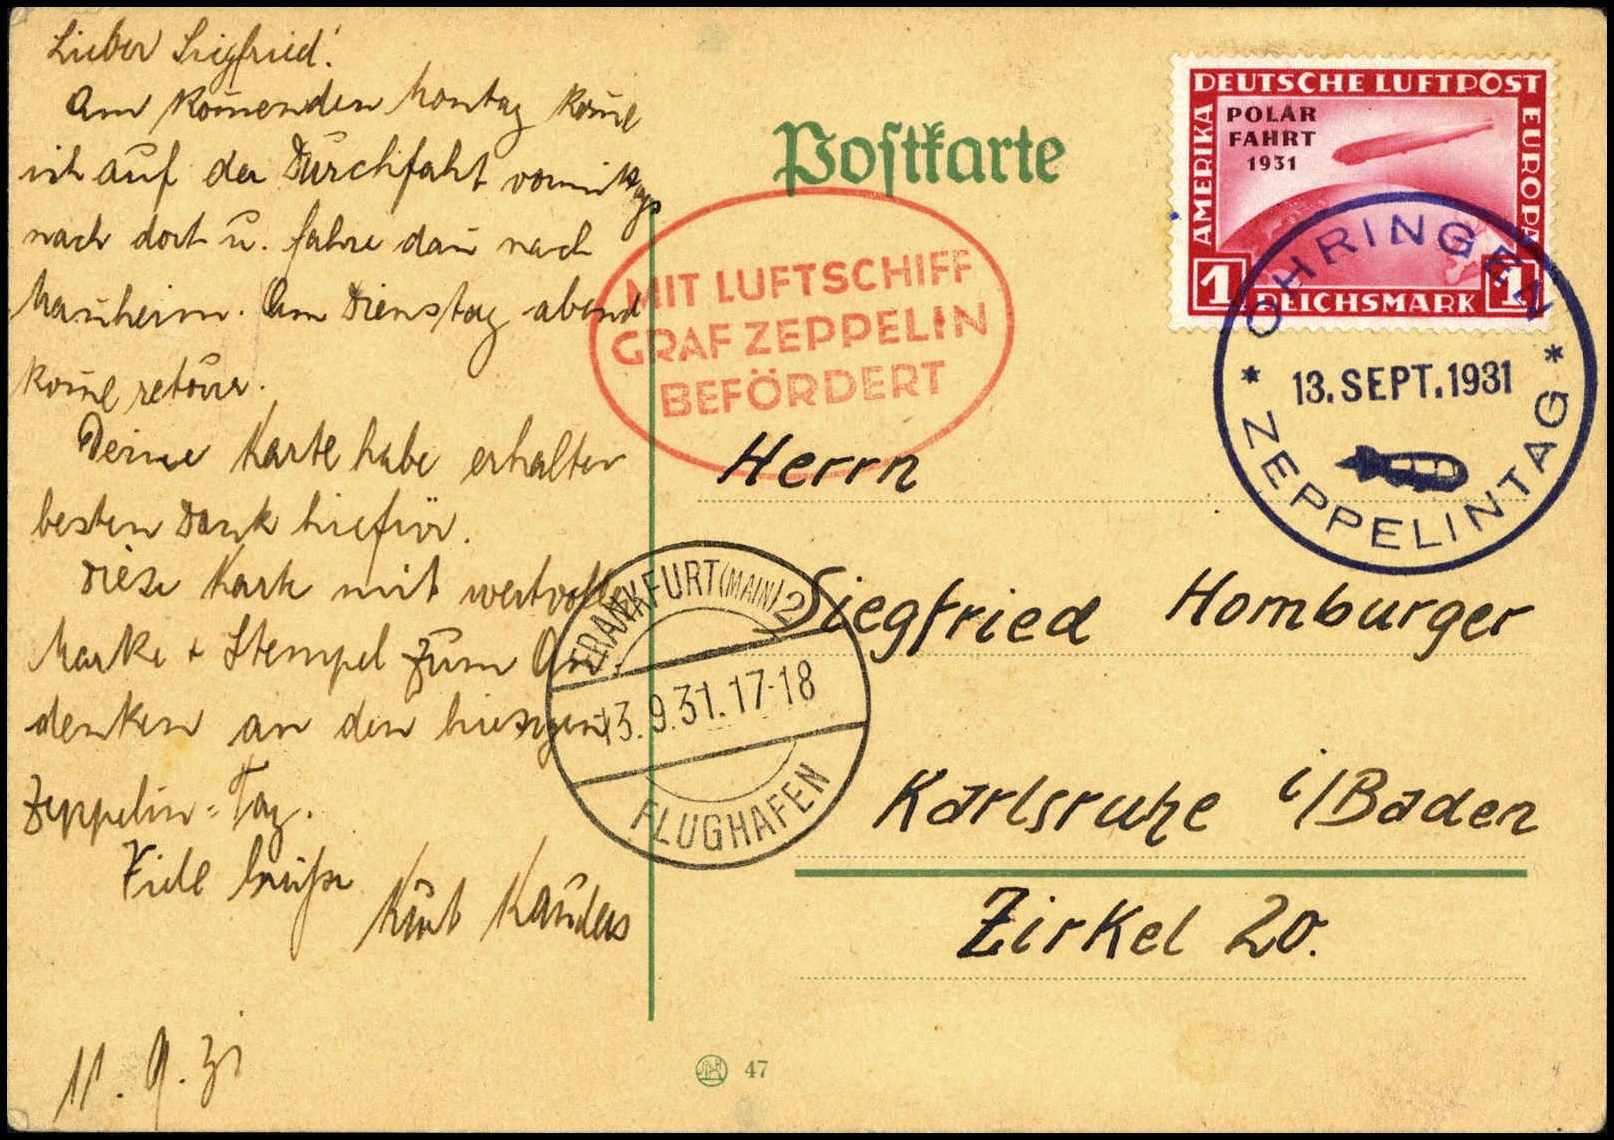 Lieber Siegfried!
Am kom̄enden Montag kom̄e
ich auf der Durchfahrt vormittags
nach dort u. fahre dan̄ nach
Man̄heim. Am Dienstag abend
kom̄e retour.
Deine Karte habe erhalten
besten Dank hiefür.
Diese Karte mit wertvoller
Marke + Stempel zum An-
denken an den hiesigen
Zeppelin=Tag.
Viele Grüße
Kurt
11. 9. 31
Postkarte
DEUTSCHE LUFTPOST
AMERIKA
EUROPA
POLAR
FAHRT
1931
1 REICHSMARK 1
MIT LUFTSCHIFF
GRAF ZEPPELIN
BEFÖRDERT
OHRINGEN
13. SEPT. 1931
* ZEPPELINTAG *
Herrn
Siegfried Homburger
Karlsruhe i/Baden
Zirkel 20.
FRANKFURT (MAIN) 2
13.9.31.17-18
FLUGHAFEN
47